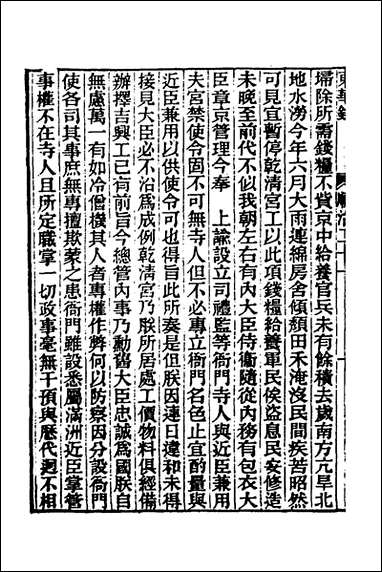 東華錄 順治二十一
埽除所需錢糧不貲京中給養官兵未有餘積去歲南方亢旱北
地水澇今年六月大雨連綿房舍傾頹田禾淹沒民間疾苦昭然
可見宜暫停乾清宮工以此項錢糧給養軍民俟盜息民安修造
未晚至前代不似我朝左右有內大臣侍衞隨從內務有包衣大
臣章京管理今奉 上諭設立司禮監等衙門寺人與近臣兼用
夫宮禁使令固不可無寺人但不必專立衙門名色止宜酌量與
近臣兼用以供使令可也得旨此所奏是但朕因連日違和未得
接見大臣必不沿爲成例乾清宮乃朕所居處工價物料俱經備
辦擇吉興工已有前旨今總管內事乃勳舊大臣忠誠爲國朕自
無慮萬一有如冷僧機其人者專權作弊何以防察因分設衙門
使各司其事庶無專擅欺蒙之患衙門雖設悉屬滿洲近臣掌管
事權不在寺人且所定職掌一切政事毫無干預與歷代迥不相